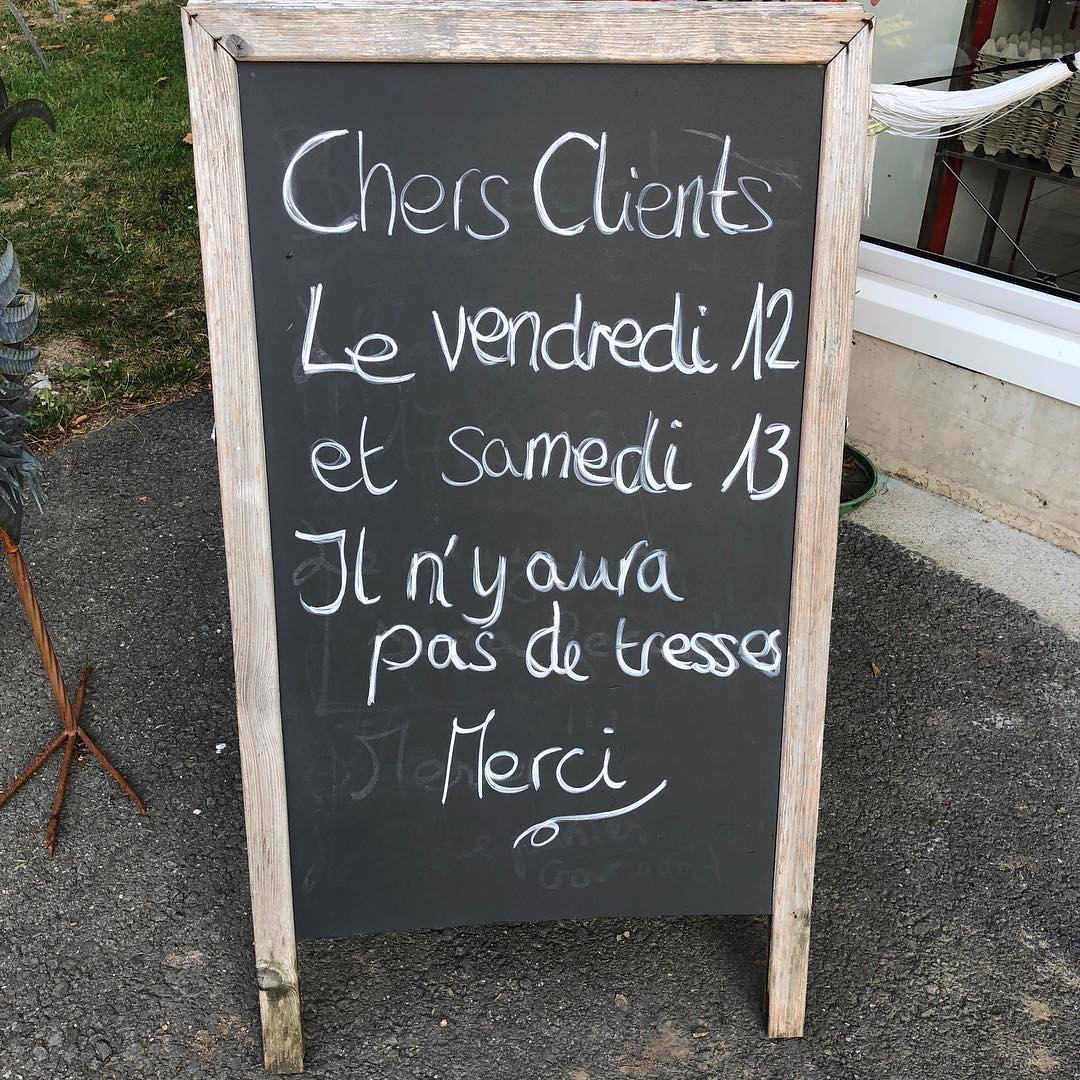 Chers Clients
Le vendredi 12
et samedi 13
Il n'y aura
pas de tresses
Merci